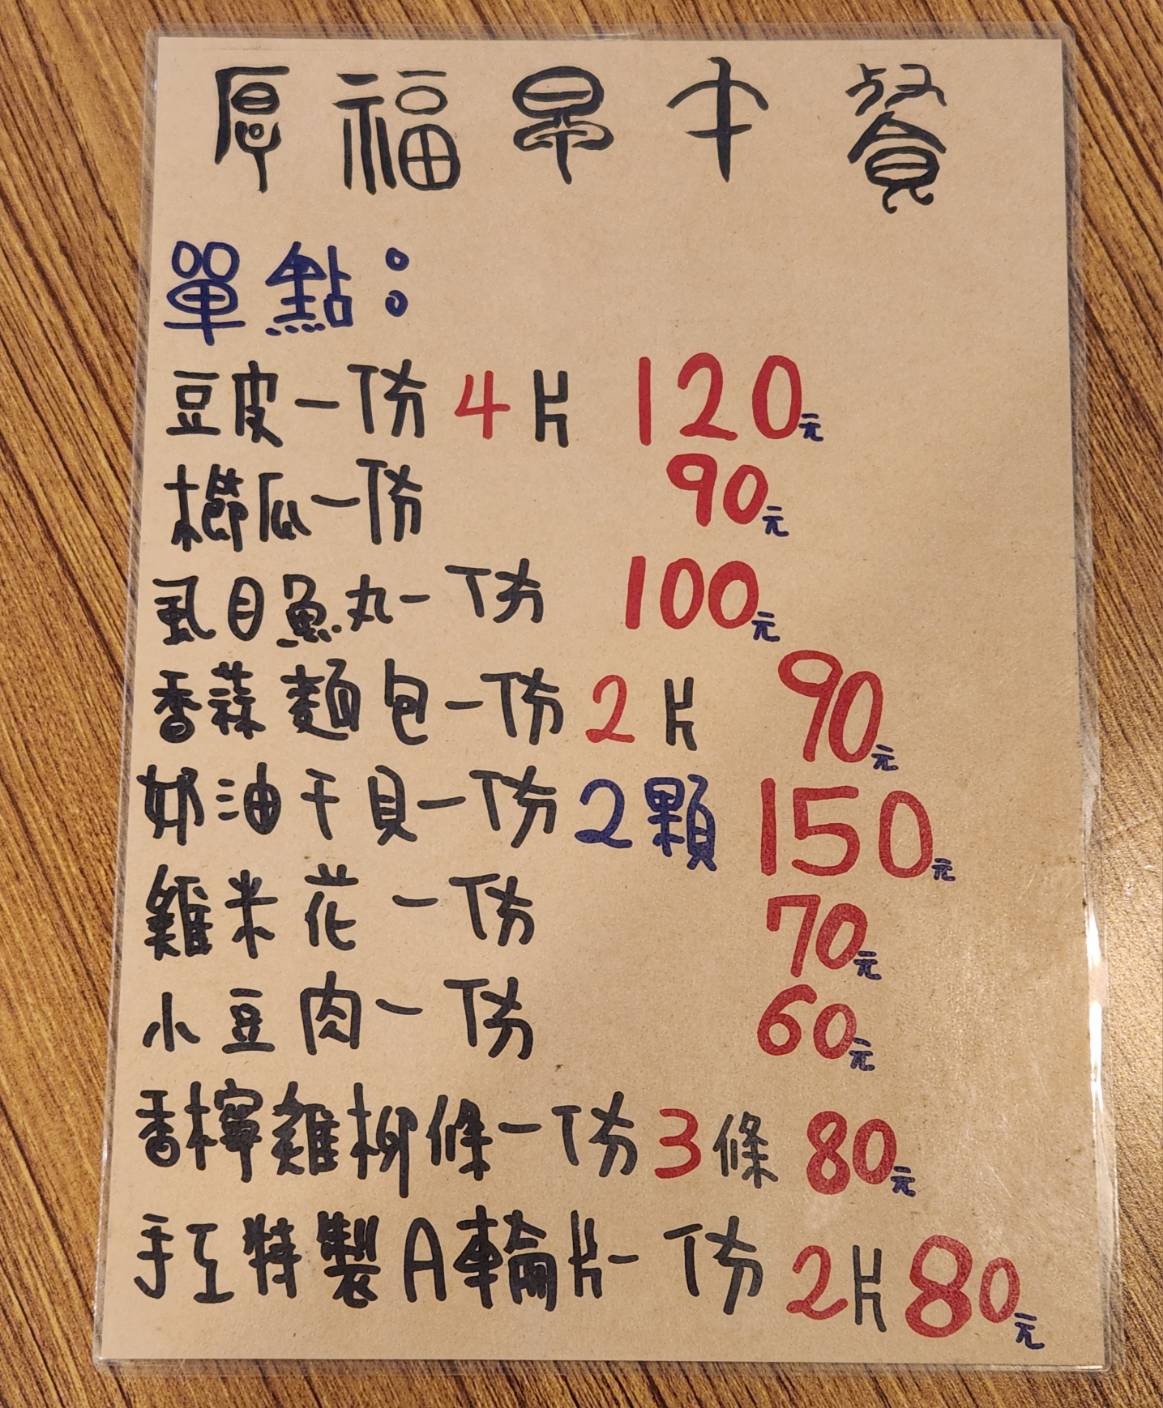 厚福早午餐
單點：
豆皮一份4片 120元
櫛瓜一份 90元
虱目魚丸一份 100元
香蒜麵包一份2片 90元
奶油干貝一份2顆 150元
雞米花一份 70元
小豆肉一份 60元
香檸雞柳條一份3條 80元
手工特製A輪片一份 2片80元